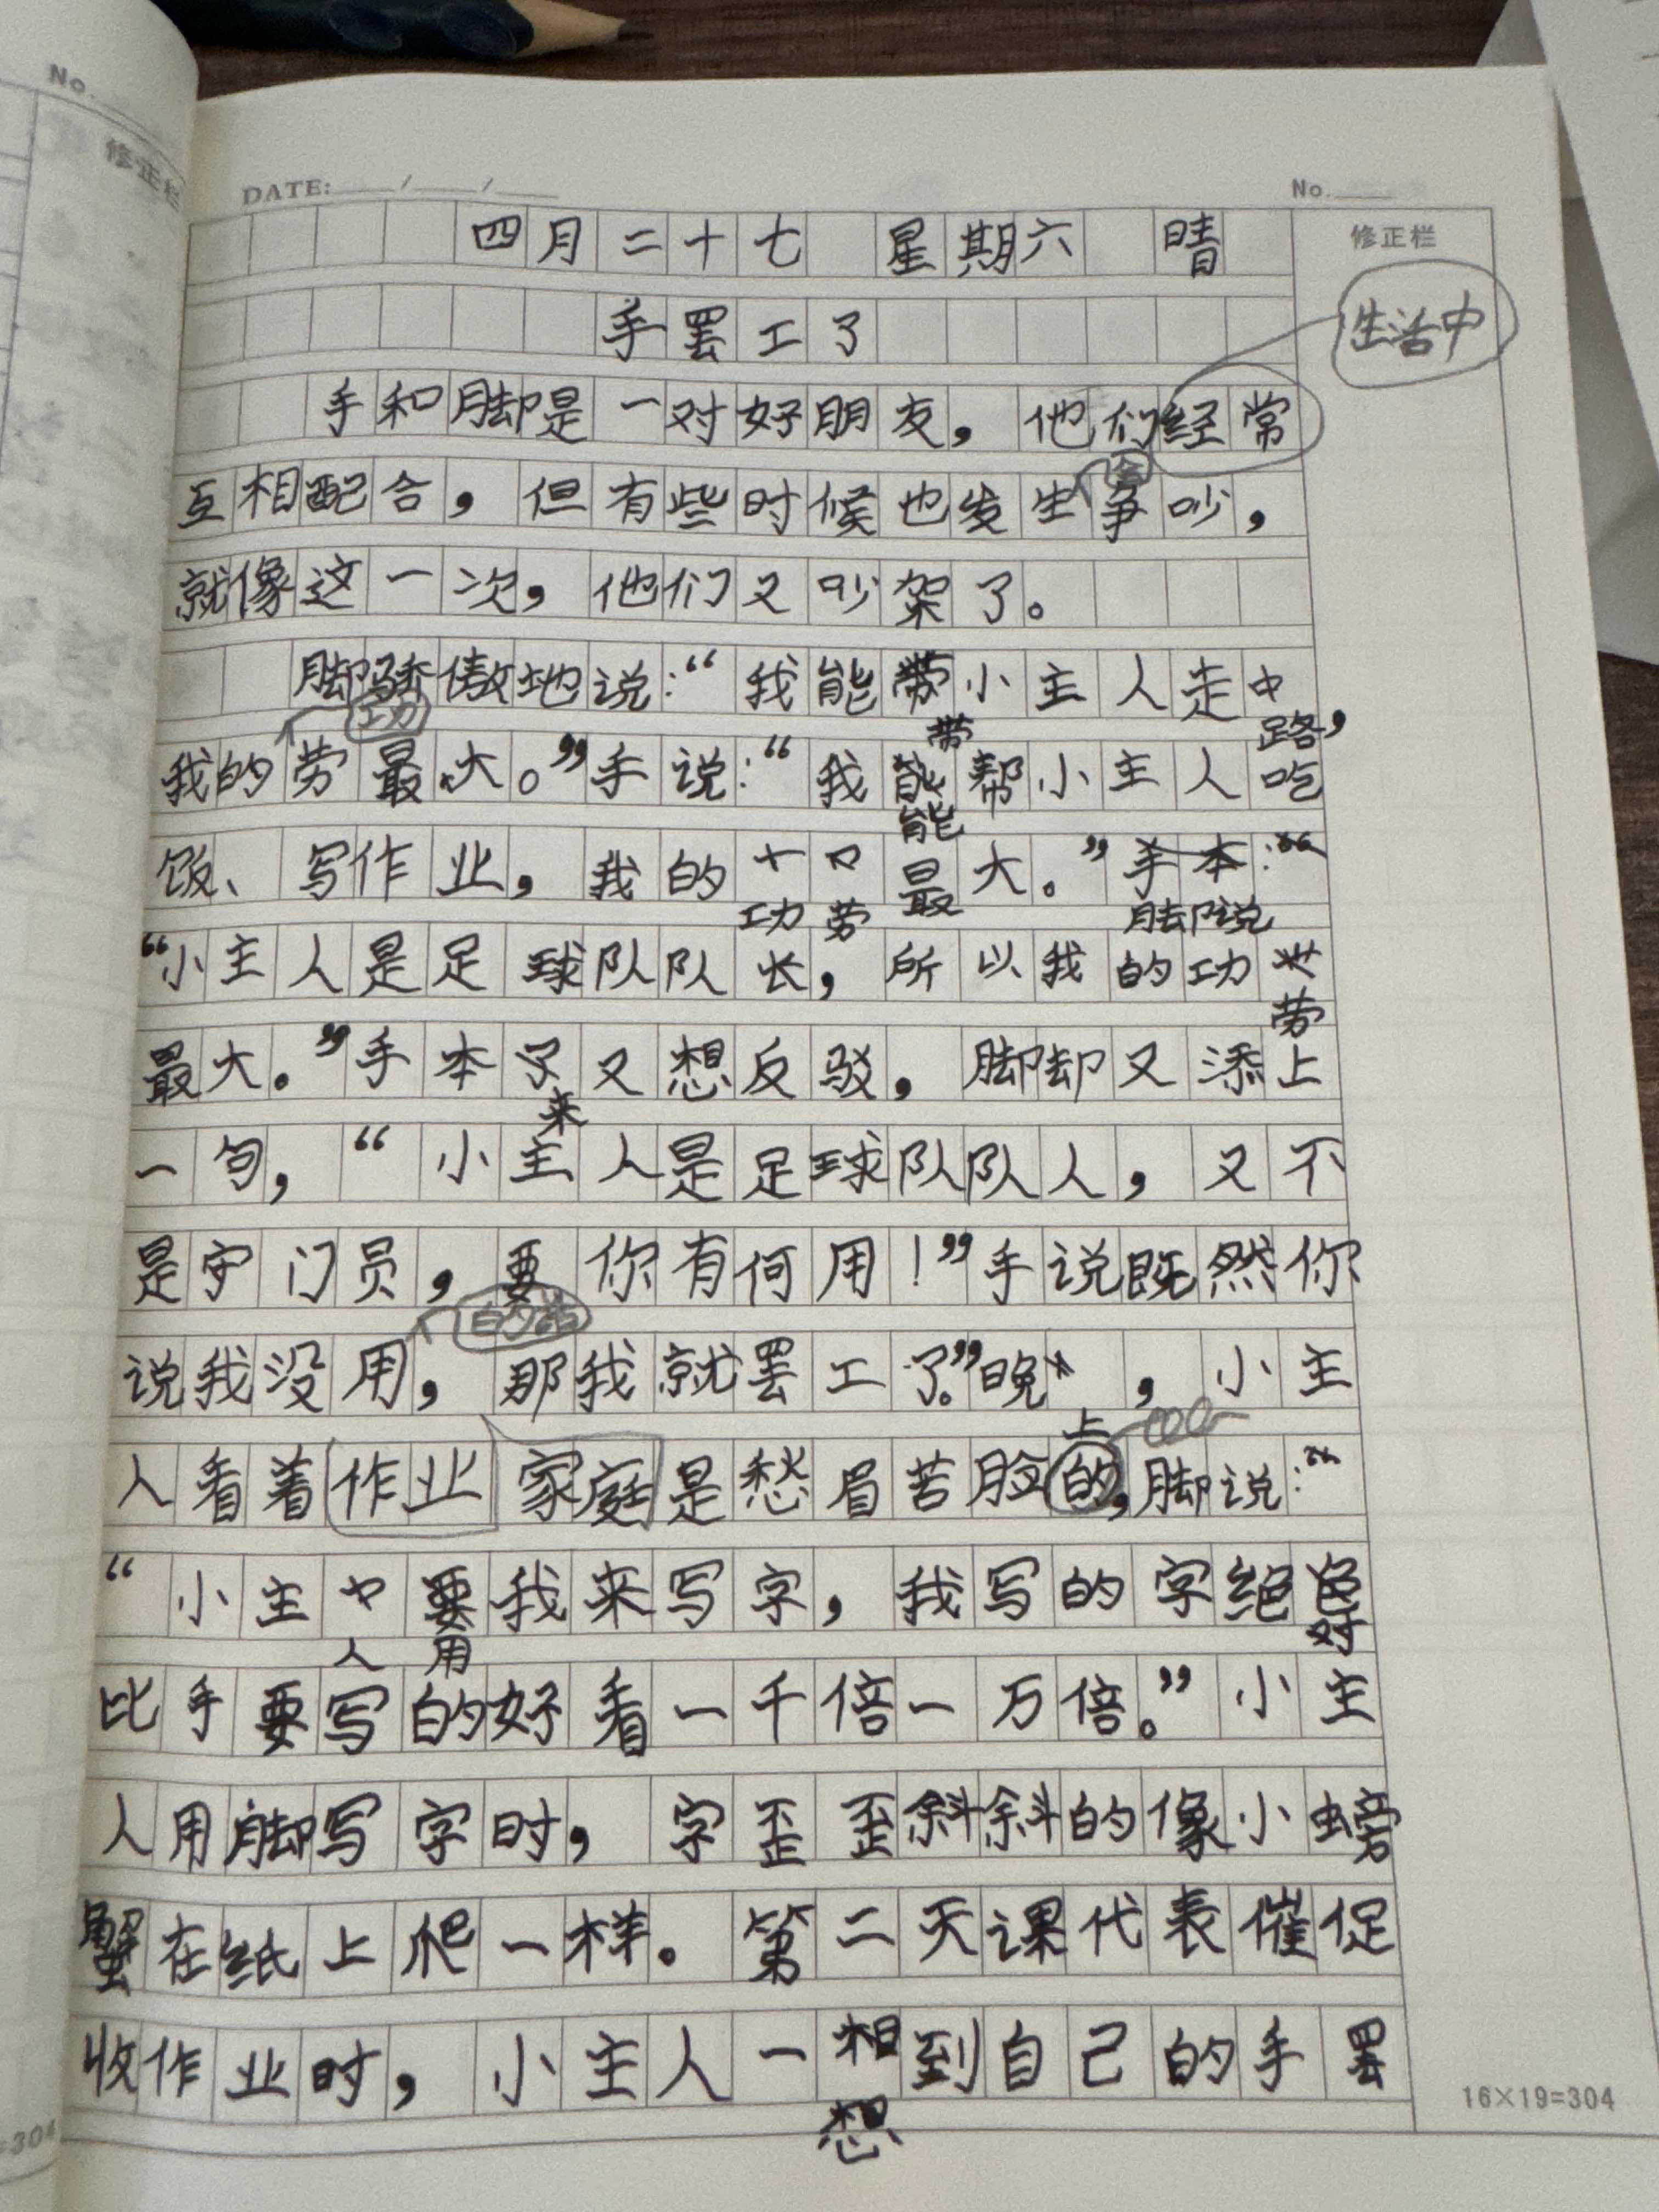 No.
修正栏
DATE: / /
No.
四月二十七 星期六 晴
修正栏
生活中
手罢工了
手和脚是一对好朋友，他们经常
会
互相配合，但有些时候也发生争吵，
就像这一次，他们又吵架了。
脚骄傲地说：“我能带小主人走
功
带
路，
我的劳最大。”手说：“我能帮小主人吃
能
饭、写作业，我的最大。”手本：“
功劳
脚说
“小主人是足球队队长，所以我的功
劳
最大。”手本又想反驳，脚却又添上
来
一句，“小主人是足球队队人，又不
是守门员，要你有何用！”手说既然你
的话
说我没用，那我就罢工了。”晚，小主
上
人看着作业家庭是愁眉苦脸的，脚说：“
“小主要我来写字，我写的字绝
人 用
好
比手要写的好看一千倍一万倍。”小主
人用脚写字时，字歪歪斜斜的像小螃
蟹在纸上爬一样。第二天课代表催促
收作业时，小主人一相到自己的手罢
想
16×19=304
=304